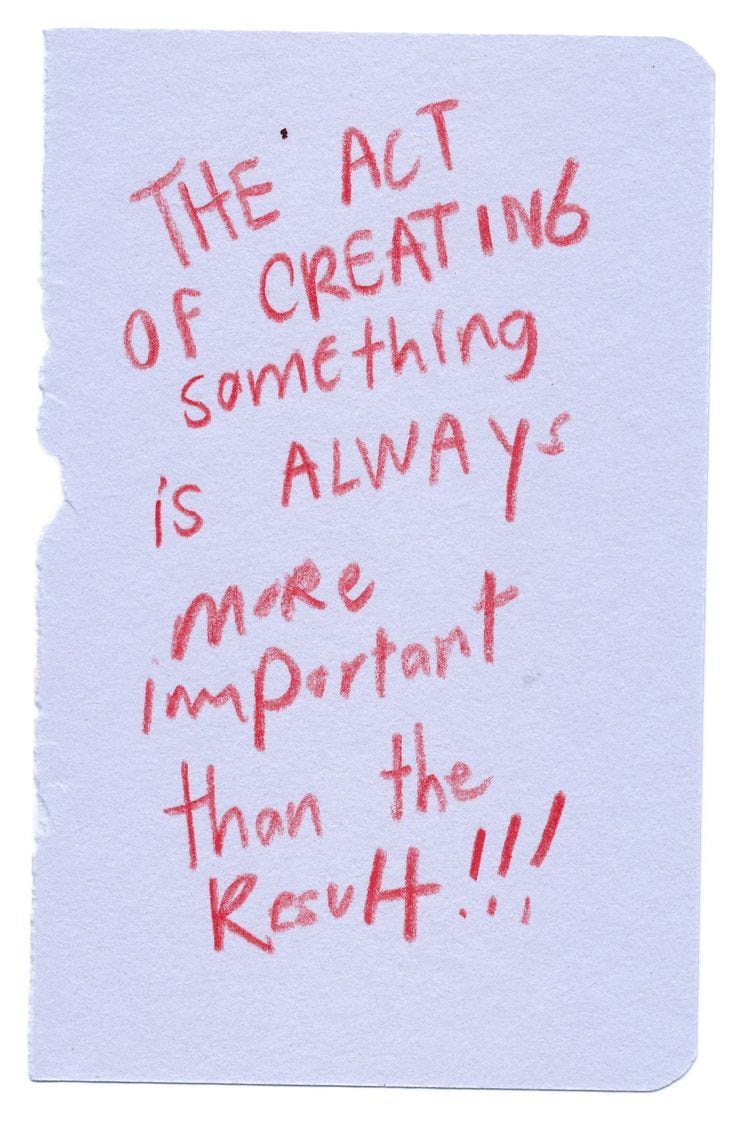 THE ACT
OF CREATING
something
is ALWAYs
moRe
important
than the
Result!!!